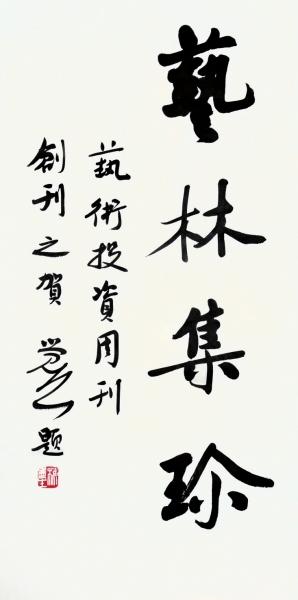 藝林集珍
藝術投資周刊
創刊之賀 觉之题